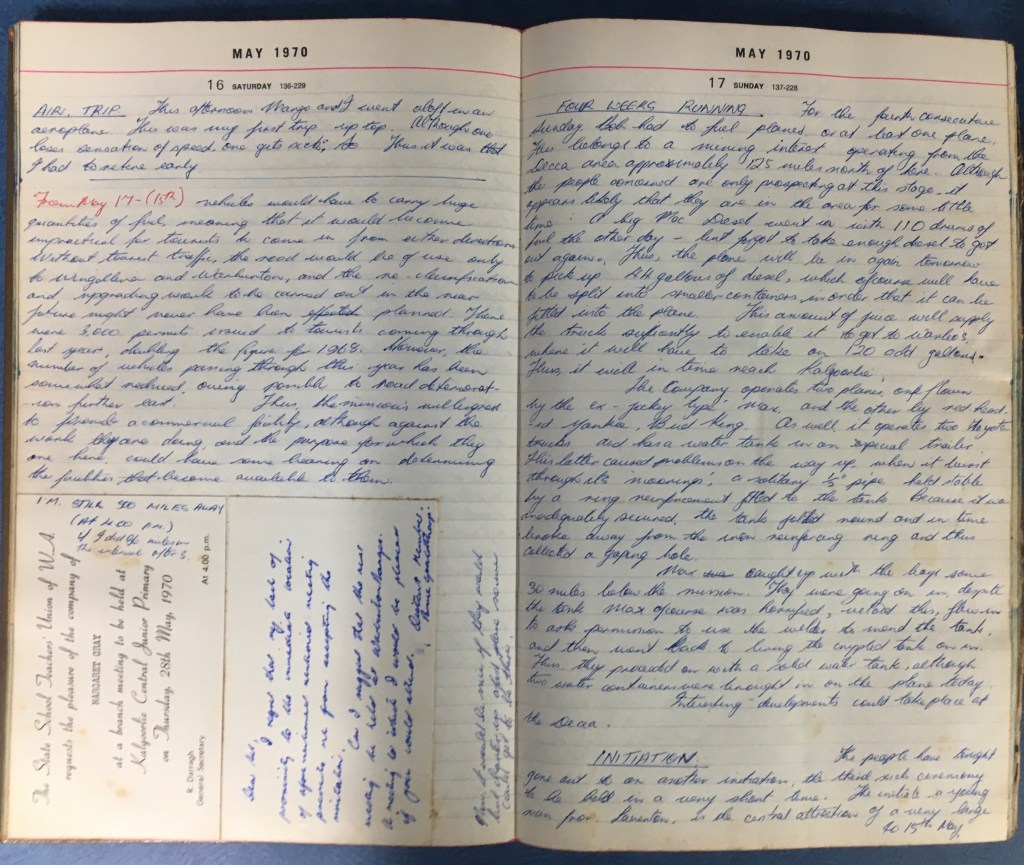 MAY 1970
16 SATURDAY 136-229
AIR TRIP This afternoon Marge and I went aloft in an
aeroplane. This was my first trip up top. Although one
loses sensation of speed one gets sick; so Thus it was that
I had to retire early
From May 17 - (15th) vehicles would have to carry huge
quantities of fuel, meaning that it would become
impractical for tourists to come in from either direction
Without tourist traffic, the road would be of use only
to Wingellena and Warburton, and the re-classification
and upgrading works to be carried out in the near
future might never have been planned. There
were 3,000 permits issued to tourists coming through
last year, doubling the figure for 1968. However, the
number of vehicles passing through this year has been
somewhat reduced, owing possible to road deteriorat-
-ion further east. Thus, the mission's
to provide a commercial facility, although against the
work they are doing, and the purpose for which they
are here, could have some bearing on determining
the facilities that become available to them.
I'M STILL 590 MILES AWAY
(At 4.00 P.M.)
if I did 90 miles in
the interval after 3.
The State School Teachers' Union of W.A.
requests the pleasure of the company of
MARGARET GRAY
at a branch meeting to be held at
Kalgoorlie Central Junior Primary
on Thursday, 28th May, 1970
At 4.00 p.m.
R. Darragh
General Secretary
Dear Sir,
I regret that my lack of
proximity to the immediate location
of your aforementioned meeting
prevents me from accepting the
invitation.
Can I suggest that the next
meeting be held at Warburton Ranges.
A meeting to which I would be pleased
if you could attend.
Distant Member,
mine gratefully
MAY 1970
17 SUNDAY 137-228
FOUR WEEKS RUNNING For the fourth consecutive
Sunday Bob had to fuel planes, or at least one plane.
This belongs to a mining interest operating from the
Decca area approximately 125 miles north of here. Although
the people concerned are only prospecting at this stage, it
appears likely that they are in the area for some little
time. A big Mac Diesel went in with 110 drums of
fuel the other day - but forgot to take enough diesel to get
out again. Thus, the plane will be in again tomorrow
to pick up 44 gallons of diesel, which ofcourse will have
to be split into smaller containers in order that it can be
fitted into the plane. This amount of juice will supply
the truck sufficiently to enable it to get to
where it will have to take on 120 odd gallons.
Thus, it will in time reach Kalgoorlie.
The Company operates two planes, one flown
by the ex-jockey type Max, and the other by red head-
-ed Yankee, Bud King. As well it operates two
trucks and has a water tank in an especial trailer.
This latter caused problems on the way up, when it burst
through it's moorings; a solitary ½" pipe held stable
by a ring reinforcement fitted to the tank. Because it was
inadequately secured, the tank jolted round and in time
broke away from the iron reinforcing ring and thus
collected a gaping hole.
Max caught up with the boys some
30 miles below the mission. They were going on in, despite
the tank. Max ofcourse was horrified, vetoed this, flew in
to ask permission to use the welder to mend the tank,
and then went back to bring the crippled tank on in.
Thus, they proceeded on with a solid water tank, although
two water containers were brought in on the plane today.
Interesting developments could take place at
the Decca.
INITIATION The people have tonight
gone out to an another initiation, the third such ceremony
to be held in a very short time. The initiate, a young
man from Laverton, is the central attraction of a very large
to 15th May.